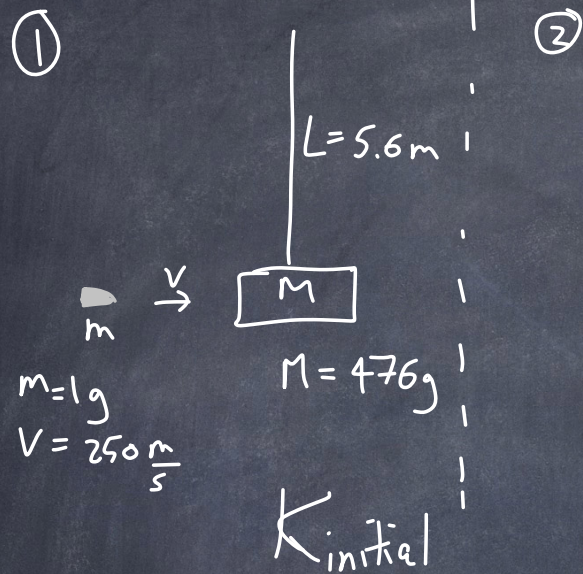 ①
②
L = 5.6 m
V →
M
m
M = 476g
m = 1g
V = 250 m/s
Kinitial